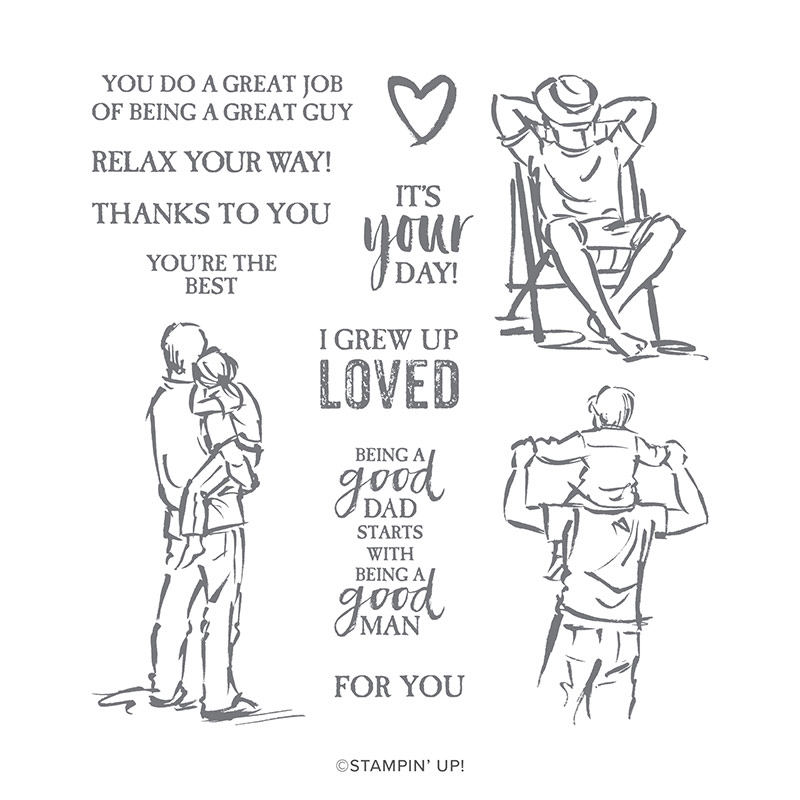 YOU DO A GREAT JOB
OF BEING A GREAT GUY
RELAX YOUR WAY!
THANKS TO YOU
YOU'RE THE
BEST
IT'S
your
DAY!
I GREW UP
LOVED
BEING A
good
DAD
STARTS
WITH
BEING A
good
MAN
FOR YOU
©STAMPIN' UP!